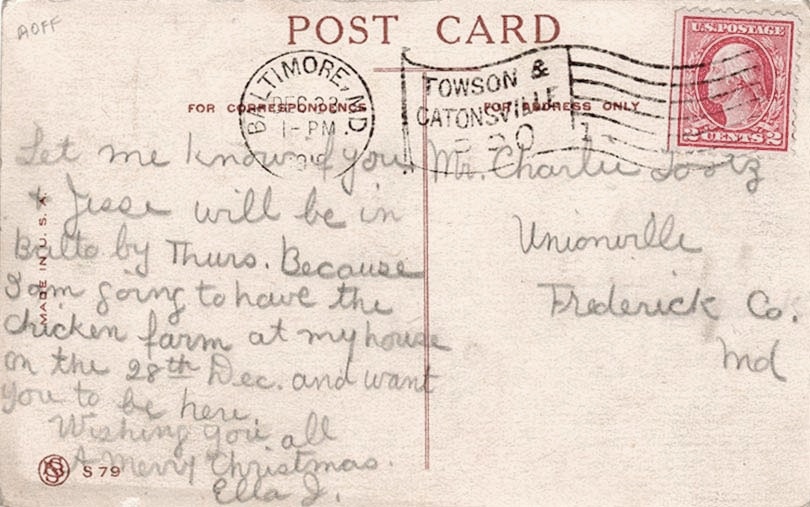 AOFF
POST CARD
U.S. POSTAGE
2 CENTS 2
BALTIMORE, MD.
DEC 22
1-PM
TOWSON &
CATONSVILLE
FOR CORRESPONDENCE
FOR ADDRESS ONLY
Let me know if you
& Jesse will be in
Balto by Thurs. Because
I am going to have the
chicken farm at my house
on the 28th Dec. and want
you to be here.
Wishing you all
A Merry Christmas.
Ella J.
Mr. Charlie
Unionville
Frederick Co.
Md
MADE IN U.S.A.
S 79